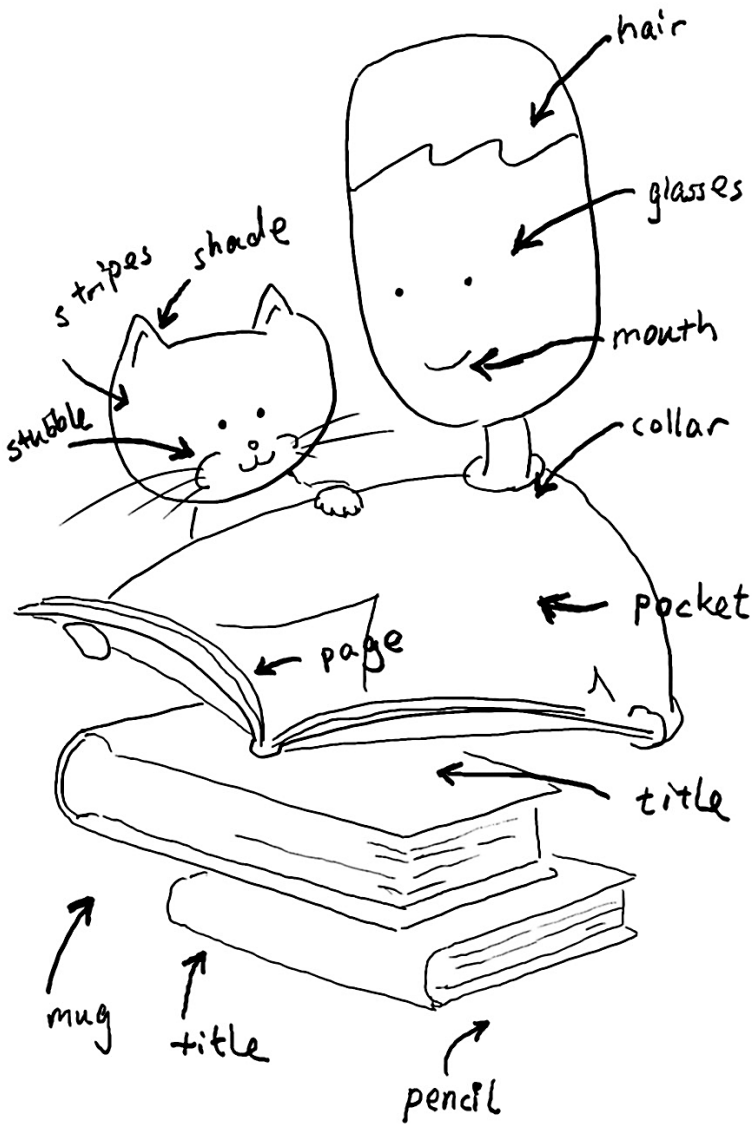 hair
glasses
shade
stripes
mouth
stubble
collar
pocket
page
title
mug
title
pencil